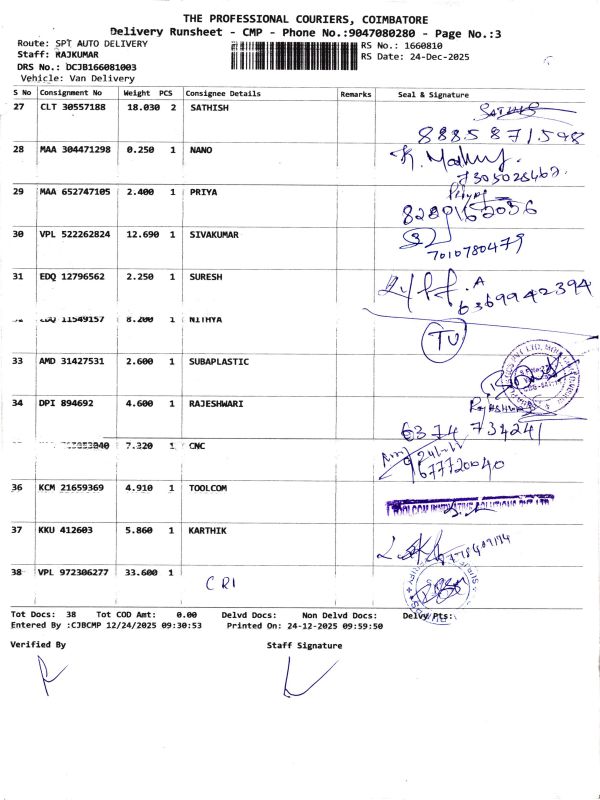 THE PROFESSIONAL COURIERS, COIMBATORE
Delivery Runsheet - CMP - Phone No.:9047080280 - Page No.:3
Route: SPT AUTO DELIVERY
RS No.: 1660810
Staff: RAJKUMAR
RS Date: 24-Dec-2025
DRS No.: DCJB166081003
Vehicle: Van Delivery
S No Consignment No Weight PCS Consignee Details Remarks Seal & Signature
27 CLT 30557188 18.030 2 SATHISH
8885871598
28 MAA 304471298 0.250 1 NANO
7305028462
29 MAA 652747105 2.400 1 PRIYA
30 VPL 522262824 12.690 1 SIVAKUMAR
7010780479
31 EDQ 12796562 2.250 1 SURESH
6369942394
11549157 8.200 1 NITHYA
TU
33 AMD 31427531 2.600 1 SUBAPLASTIC
34 DPI 894692 4.600 1 RAJESHWARI
6374 734241
7.320 1 CNC
9677720040
36 KCM 21659369 4.910 1 TOOLCOM
TOOLCOM INNOVATIVE SOLUTIONS PVT LTD
37 KKU 412603 5.860 1 KARTHIK
38 VPL 972306277 33.600 1 CRI
Tot Docs: 38 Tot COD Amt: 0.00 Delvd Docs: Non Delvd Docs: Delvy Pts:
Entered By :CJBCMP 12/24/2025 09:30:53 Printed On: 24-12-2025 09:59:50
Verified By Staff Signature